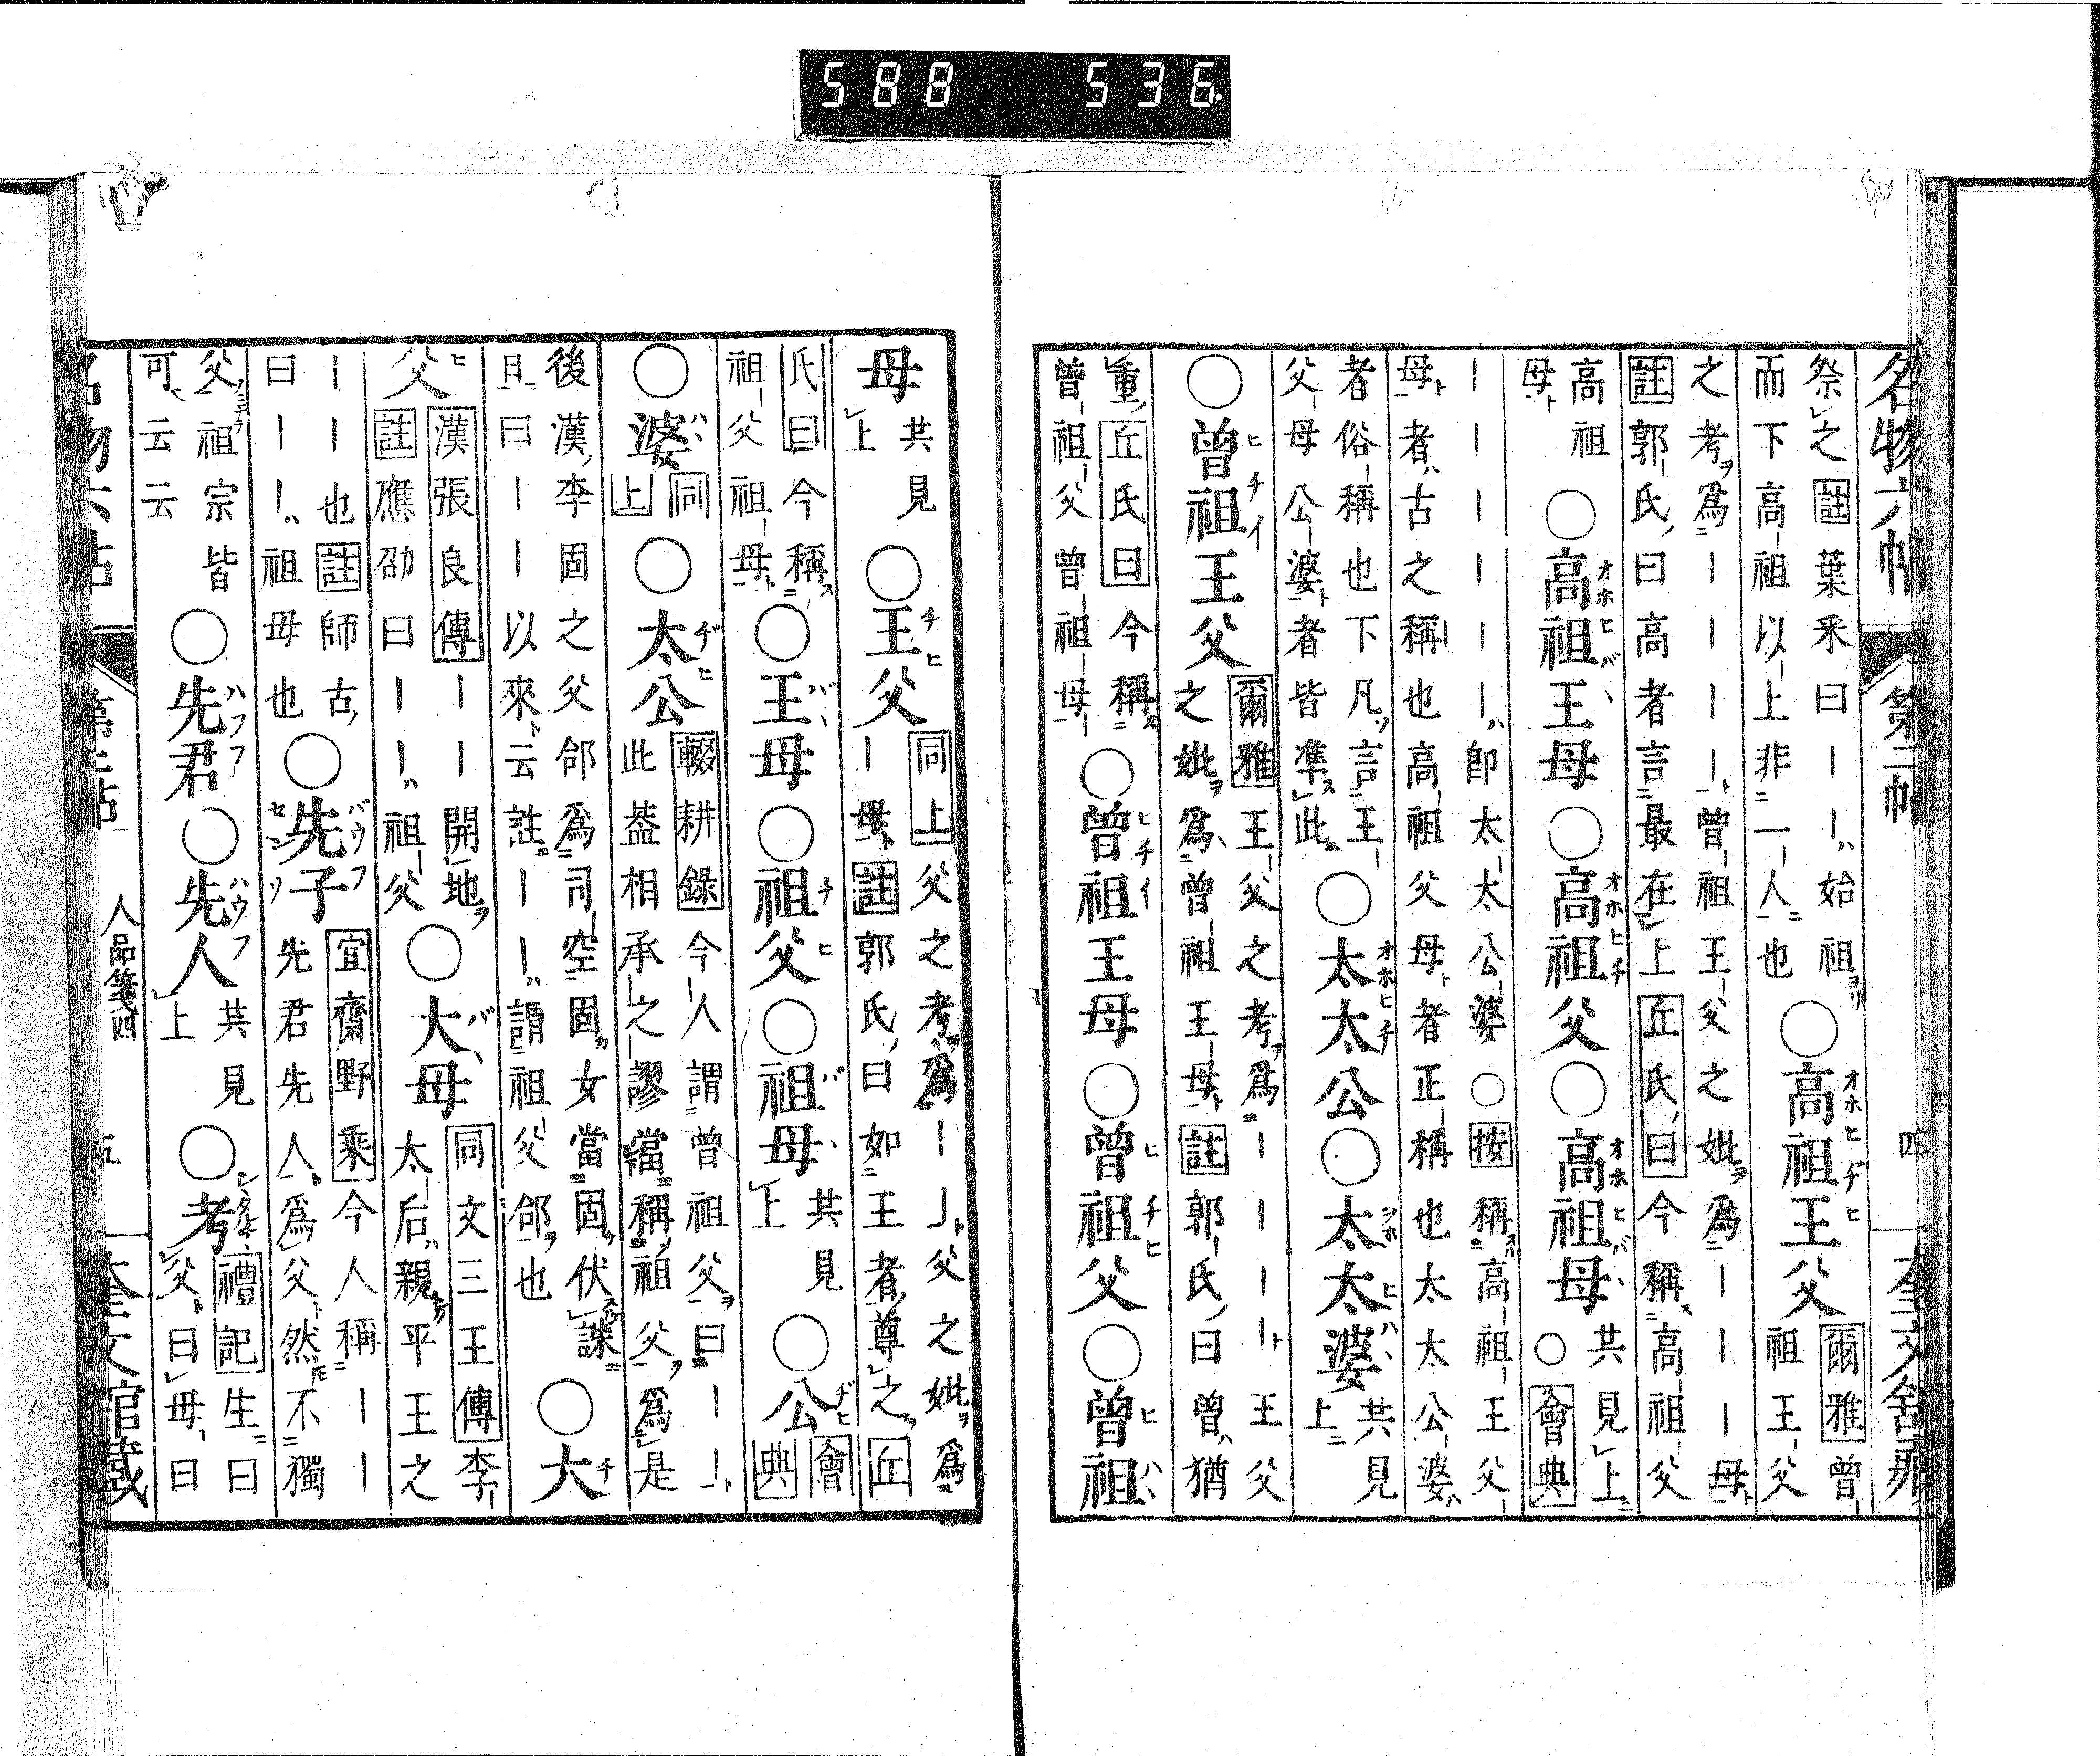 名物六帖　第二帖　四　奎文舘藏
祭之註葉釆曰｜｜始祖
而下高祖以上非一人也
○高祖王父
爾雅曾
祖王父
之考爲｜｜｜｜曾祖王父之妣爲｜｜｜母
註郭氏曰高者言最在上丘氏曰今稱高祖父
高祖
母
○高祖王母○高祖父○高祖母
共見上
○會典
｜｜｜｜｜｜卽太太公婆○按稱高祖王父
母者古之稱也高祖父母者正稱也太太公婆
者俗稱也下凡言王
父母公婆者皆準此
○太太公○太太婆
共見
上
○曾祖王父
爾雅王父之考爲｜｜｜｜王父
之妣爲曾祖王母註郭氏曰曾猶
重丘氏曰今稱
曾祖父曾祖母
○曾祖王母○曾祖父○曾祖
母
共見
上
○王父
同上父之考爲｜｜父之妣爲
｜母註郭氏曰如王者尊之丘
氏曰今稱
祖父祖母
○王母○祖父○祖母
共見
上
○公
會
典
○婆
同
上
○太公
輟耕錄今人謂曾祖父曰｜｜
此葢相承之謬當稱祖父爲是
後漢李固之父郃爲司空固女當固伏誅
曰｜｜以來云註｜｜謂祖父郃也
○大
父
漢張良傳｜｜開地
註應劭曰｜｜祖父
○大母
同文三王傳李
太后親平王之
｜｜也註師古
曰｜｜祖母也
○先子
宜齋野乘今人稱｜｜
先君先人爲父然不獨
父祖宗皆
可云云
○先君○先人
共見
上
○考
禮記生曰
父曰母曰
名物六帖　第二帖　人品箋四　五　奎文舘藏